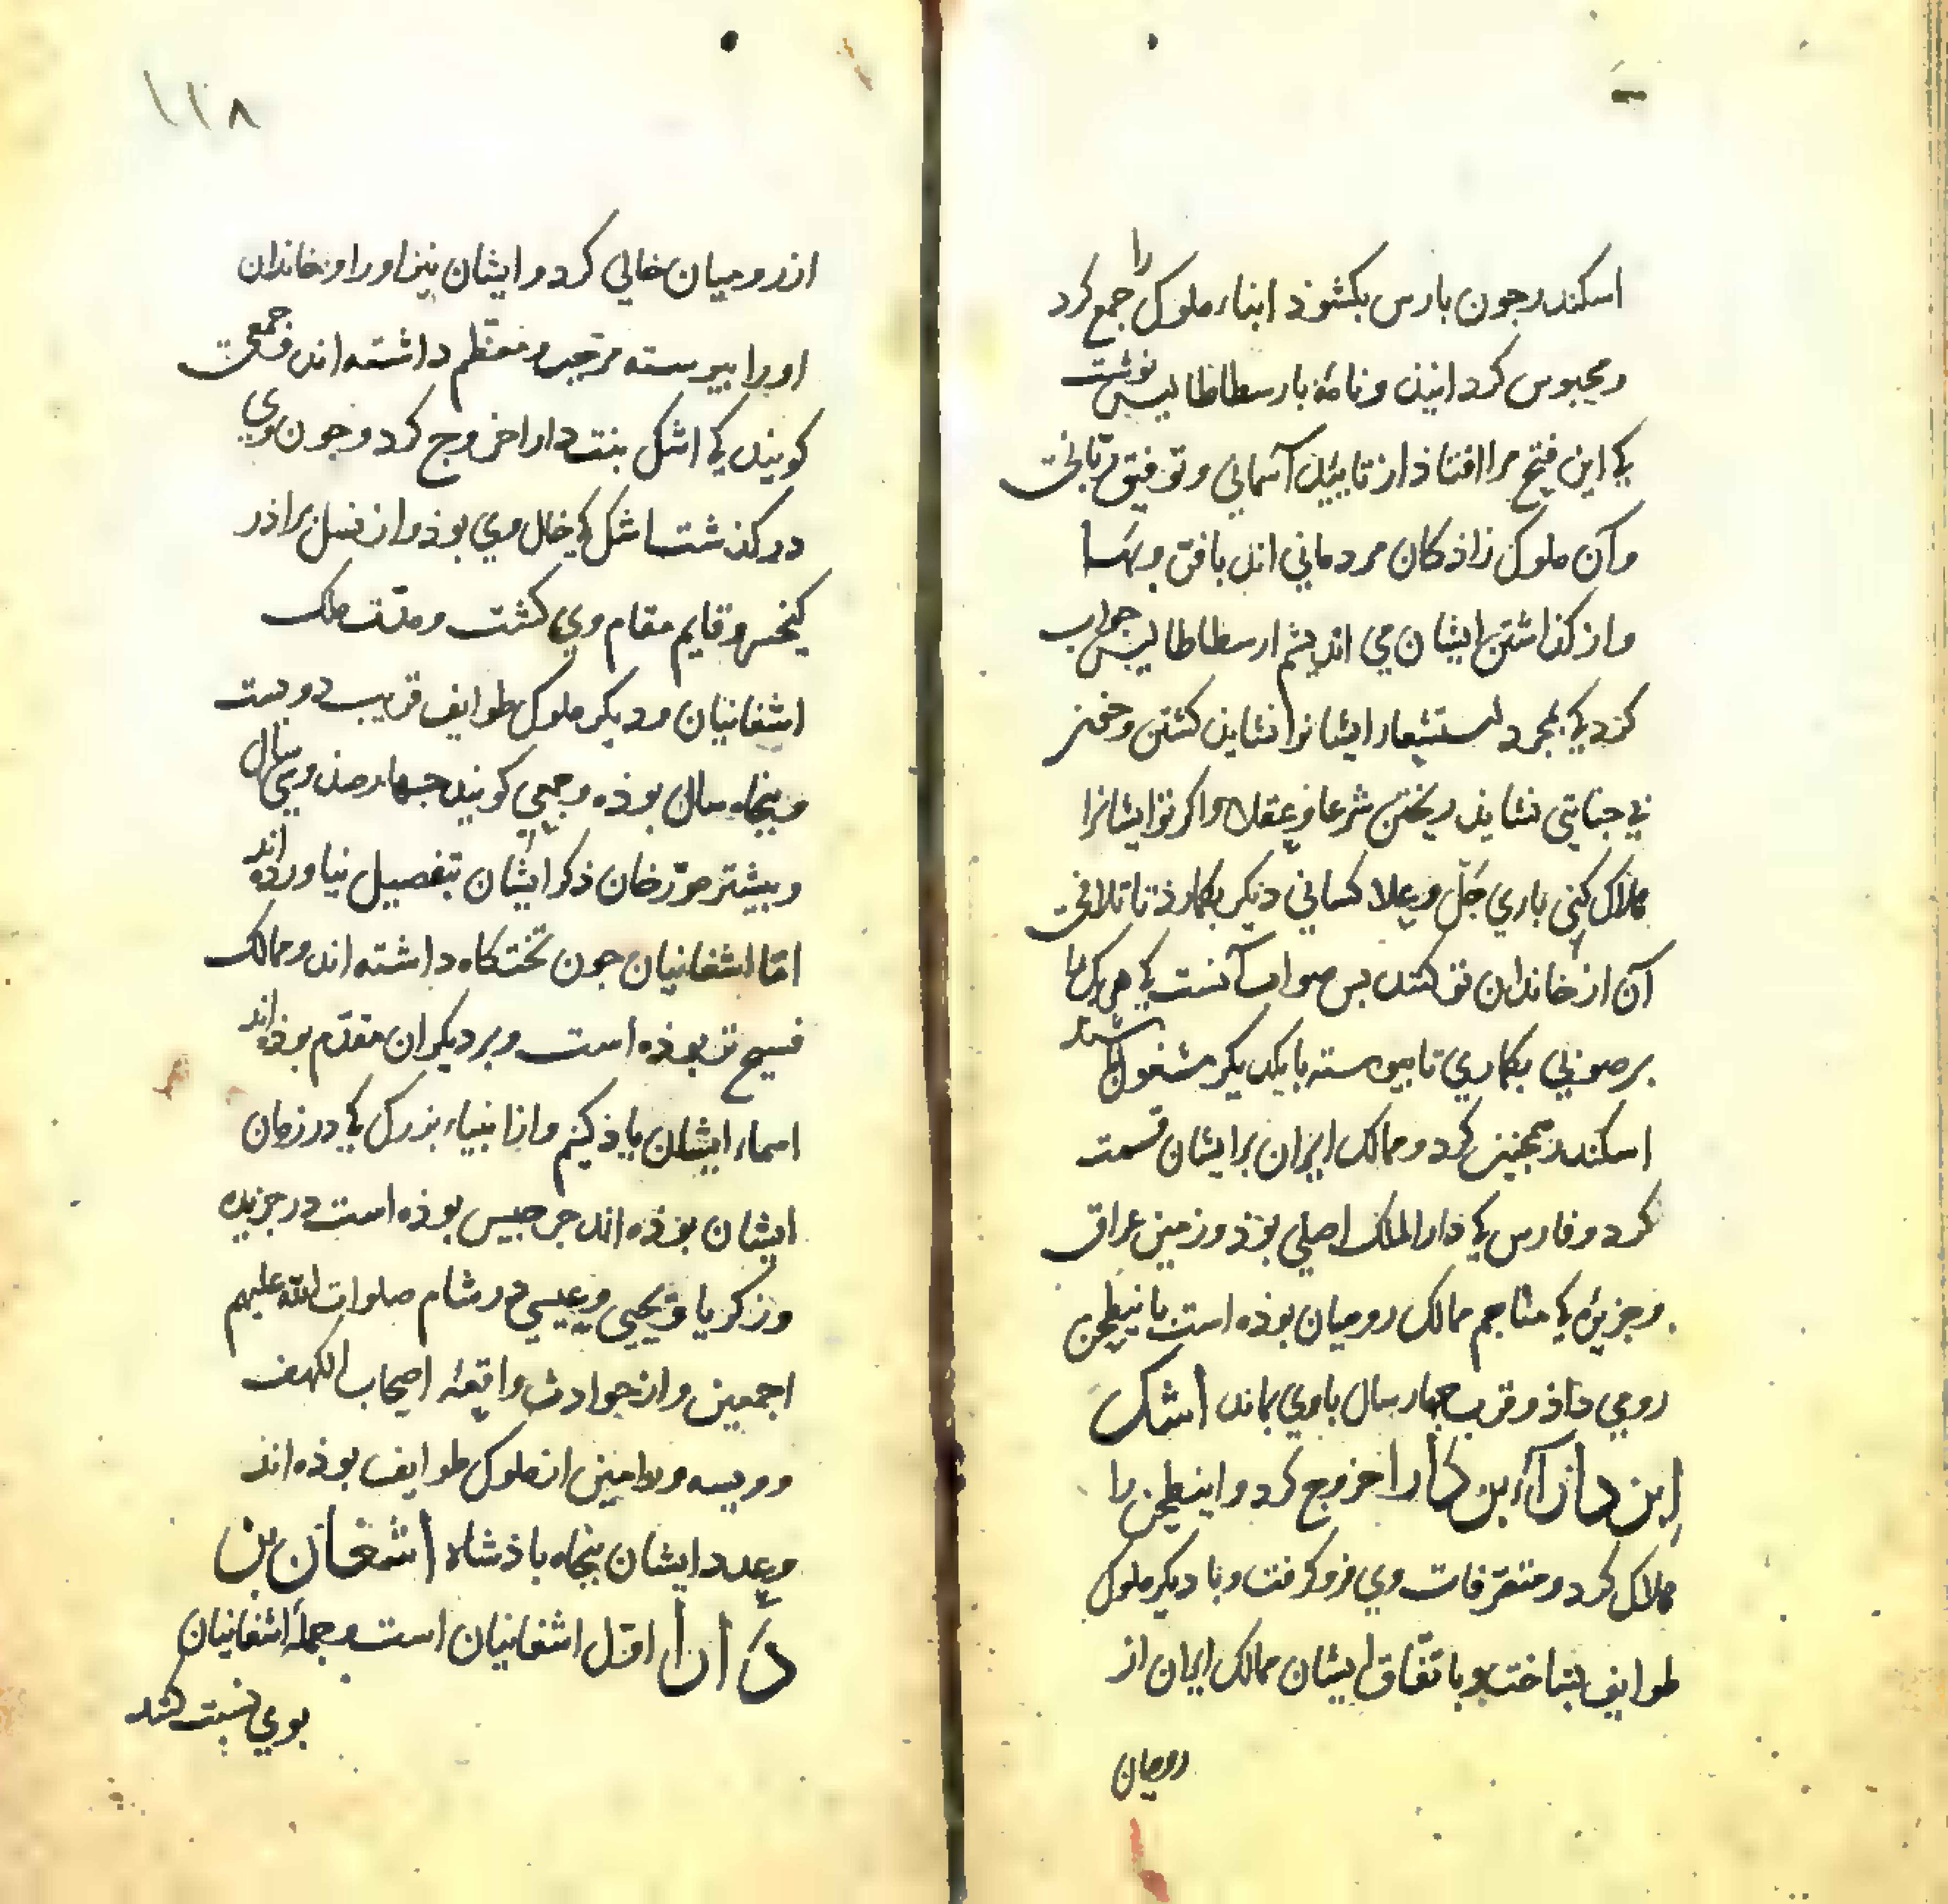 اسکندر جون بارس بکشوذ ابناء ملوک را جمع کرد
و محبوس کردانیذ و نامۀ بارسطاطالیس نوشت
کی این فتح مرا افتاذ از تایید آسمانی و توفیق ربانیت
و آن ملوک زاذکان مردمانی اند بافر و بها
و از کذاشتن ایشان می اندیشم ارسطاطالیس جواب
کرد کی بمجرد استشعار ایشانرا نشاید کشتن و خون
بی جنایتی نشاید ریختن شرعا و عقلا و اکر تو ایشانرا
هلاک کنی باری جل و علا کسانی دیکر بکمارد تا تلافی
آن از خاندان تو کنند بس صواب آنست کی هر یک را
بر صوبی بکماری تا بیوسته بایکدیکر مشغول باشند
اسکندر همجنین کرد و ممالک ایران بر ایشان قسمت
کرد و فارس کی دارالملک اصلی بوذ و زمین عراق
و جزیره کی متاجم ممالک رومیان بوذه است بانیطحن
رومی داذ و قرب جهار سال باوی بماند اشک
ابن دارا بن دارا خروج کرد و اینطحن را
هلاک کرد و متصرفات وی فرو کرفت و با دیکر ملوک
طوایف بساخت و باتفاق ایشان ممالک ایران از
رومیان
۱۱۸
از رومیان خالی کرد و ایشان نیز او را و خاندان
او را بیوسته مرجب و معظم داشته اند و جمعی
کویند کی اشک بنت دارا خروج کرد و جون وی
درکذشت اشک کی خال وی بوذ و از نسل براذر
کیخسرو قایم مقام وی کشت و مدت ملک
اشغانیان و دیکر ملوک طوایف قریب دویست
و بنجاه سال بوذه و جمعی کویند جهارصد و سی سال
و بیشتر مورخان ذکر ایشان بتفصیل نیاورده اند
اما اشغانیان جون تختکاه داشته اند و ممالک
فسیح تر بوذه است و بر دیکران مقدم بوذه اند
اسماء ایشان یاذ کنیم و از انبیاء بزرک کی در زمان
ایشان بوذه اند جرجیس بوذه است در جزیره
و زکریا و یحیی و عیسی در شام صلوات الله علیهم
اجمعین و از حوادث واقعۀ اصحاب الکهف
و ویسه و رامین از ملوک طوایف بوذه اند
و عدد ایشان بنجاه باذشاه اشغان بن
دارا اول اشغانیان است و جملۀ اشغانیان
بوی نسبت کنند